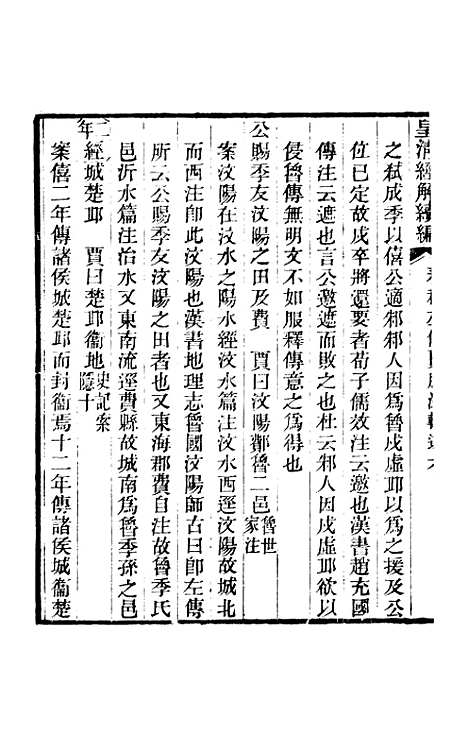 皇清經解續編
之弒成季以僖公適邾邾人因為魯戍虛丘以為之援及公
位已定故戍卒將還要者荀子儒效注云邀也漢書趙充國
傳注云遮也言公邀遮而敗之也杜云邾人因戍虛丘欲以
侵魯傳無明文不如服釋傳意之為得也
公賜季友汶陽之田及費　賈曰汶陽鄪魯二邑魯世家注
案汶陽在汶水之陽水經汶水篇注汶水西逕汶陽故城北
而西注卽此汶陽也漢書地理志魯國汶陽師古曰卽左傳
所云公賜季友汶陽之田者也又東海郡費自注故魯季氏
邑沂水篇注治水又東南流逕費縣故城南為魯季孫之邑
二年經城楚丘　賈曰楚丘衞地史記索隱十
案僖二年傳諸侯城楚丘而封衞焉十二年傳諸侯城衞楚